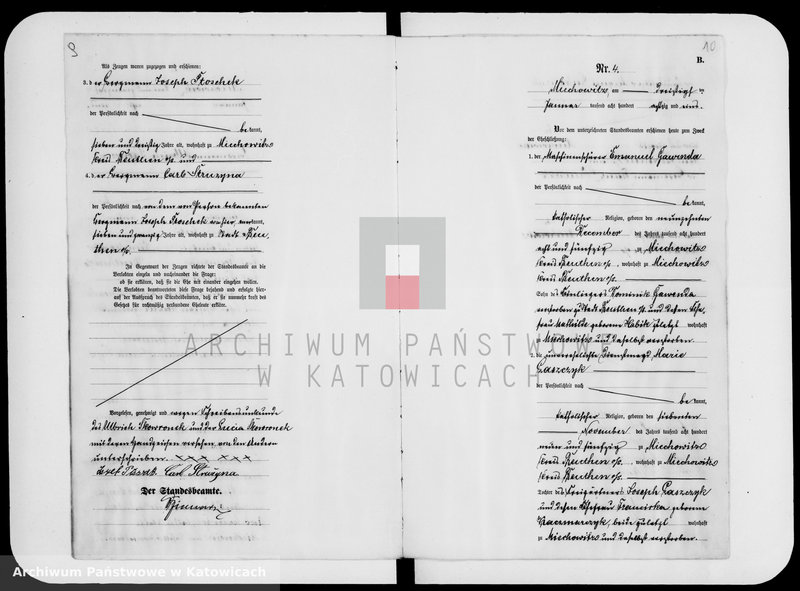 9
Als Zeugen waren zugezogen und erschienen:
3. d er Bergmann Joseph Ploschek
der Persönlichkeit nach
be kannt,
sieben und dreißig Jahre alt, wohnhaft zu Miechowitz
Kreis Beuthen o/s und
4. d er Bergmann Carl Struzyna
der Persönlichkeit nach von dem von Person bekannten
Bergmann Joseph Ploschek kannt,
sieben und zwanzig Jahre alt, wohnhaft zu Stadt Beu-
then o/s.
In Gegenwart der Zeugen richtete der Standesbeamte an die
Verlobten einzeln und nacheinander die Frage:
ob sie erklären, daß sie die Ehe mit einander eingehen wollen.
Die Verlobten beantworteten diese Frage bejahend und erfolgte hier-
auf der Ausspruch des Standesbeamten, daß er sie nunmehr kraft des
Gesetzes für rechtmäßig verbundene Eheleute erkläre.
Vorgelesen, genehmigt und wegen Schreibensunkunde
des Ulbrich Skowronek und der Lucia Skowronek
mit deren Handzeichen versehen von den Andern
unterschrieben. xxx xxx
Carl Struzyna
Der Standesbeamte.
10
B.
Nr. 4.
Miechowitz, am dreißigsten
Januar tausend acht hundert achtzig und eins.
Vor dem unterzeichneten Standesbeamten erschienen heute zum Zweck
der Eheschließung:
1. der Maschinenführer Emanuel Gawenda
der Persönlichkeit nach
be kannt,
katholischer Religion, geboren den neunzehnten
December des Jahres tausend acht hundert
acht und fünfzig zu Miechowitz
Kreis Beuthen o/s, wohnhaft zu Miechowitz
Kreis Beuthen o/s.
Sohn des Einliegers Dominik Gawenda
verstorben zu Stadt Beuthen o/s und dessen Ehe-
frau Mathilde geborene Habik zuletzt wohnhaft
zu Miechowitz und daselbst verstorben.
2. die unverehelichte Dienstmagd Marie
Paszczyk
der Persönlichkeit nach
be kannt,
katholischer Religion, geboren den siebenten
November des Jahres tausend acht hundert
neun und fünfzig zu Miechowitz
Kreis Beuthen o/s, wohnhaft zu Miechowitz
Kreis Beuthen o/s.
Tochter des Freigärtners Joseph Paszczyk
und dessen Ehefrau Franciska geborene
Kaczmarczyk, beide zuletzt wohnhaft
zu Miechowitz und daselbst verstorben.
ARCHIWUM PAŃSTWOWE
W KATOWICACH
Archiwum Państwowe w Katowicach